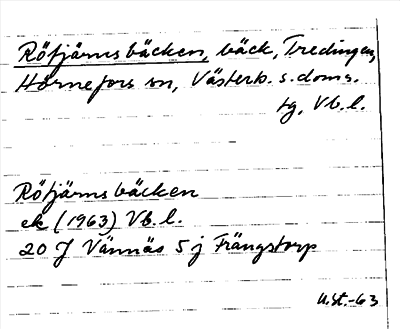 Rötjärnsbäcken, bäck, Tredingen,
Hörnefors sn, Västerb. s. doms.
tg, Vb. l.
Rötjärnsbäcken
ek (1963) Vb. l.
20 J Vännäs 5 j Frängstorp
U.St.-63